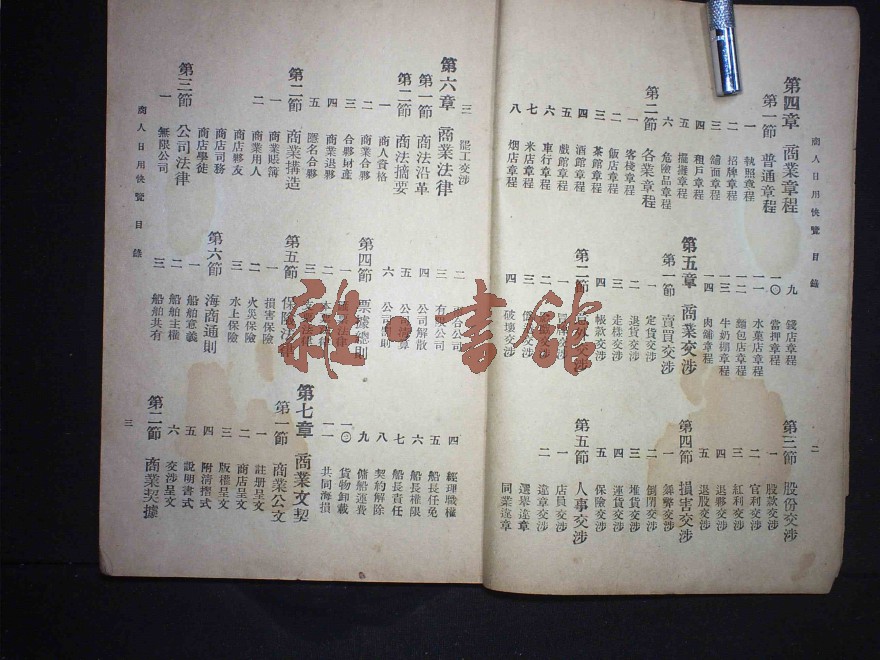 商人日用快覽 目錄 二
第四章 商業章程
第一節 普通章程
一 執照章程
二 招牌章程
三 舖面章程
四 租戶章程
五 擺攤章程
六 危險品章程
第二節 各業章程
一 客棧章程
二 飯店章程
三 茶館章程
四 酒館章程
五 戲館章程
六 車行章程
七 米店章程
八 烟店章程
九 錢店章程
一〇 當押章程
一一 水菓店章程
一二 麵包店章程
一三 牛奶棚章程
一四 肉舖章程
第五章 商業交涉
第一節 賣買交涉
一 定貨交涉
二 退貨交涉
三 走樣交涉
四 帳款交涉
第二節 交涉
一 交涉
二 交涉
三 交涉
四 破壞交涉
第三節 股份交涉
一 股款交涉
二 官利交涉
三 紅利交涉
四 退夥交涉
五 退股交涉
第四節 損害交涉
一 舞弊交涉
二 倒閉交涉
三 堆貨交涉
四 運貨交涉
五 保險交涉
第五節 人事交涉
一 店員交涉
二 違章交涉
選舉違章
同業違章
三 罷工交涉
第六章 商業法律
第一節 商法沿革
第二節 商法摘要
一 商人資格
二 商業合夥
三 合夥財產
四 商業退夥
五 匿名合夥
第二節 商業構造
一 商業賬簿
二 商業用人
商店夥友
商店司務
商店學徒
第三節 公司法律
一 無限公司
二 合公司
三 有限公司
四 公司解散
五 公司清算
六 公司罰則
第四節 票據總則
一 法律
二 法律
三 法律
第五節 保險法律
一 損害保險
二 火災保險
三 水上保險
第六節 海商通則
一 船舶意義
二 船舶主權
三 船舶共有
四 經理職權
五 船長任免
六 船長權限
七 船長責任
八 契約解除
九 傭船運費
一〇 貨物卸載
一一 共同海損
第七章 商業文契
第一節 商業公文
一 註册呈文
二 商店呈文
三 版權呈文
四 附清摺式
五 說明書式
六 交涉呈文
第二節 商業契據
商人日用快覽 目錄 三
雜·書館